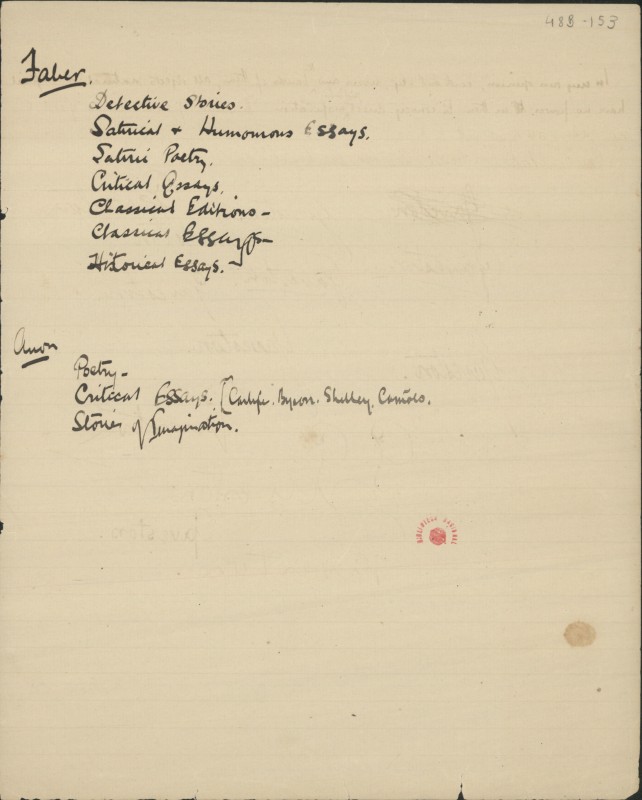 48B - 153
Faber.
Detective Stories.
Satirical & Humourous Essays.
Satiric Poetry.
Critical Essays.
Classical Editions -
Classical Essays -
Historical Essays. -
Anon
Poetry -
Critical Essays. [Carlyle. Byron. Shelley. Camões.
Stories of Imagination.